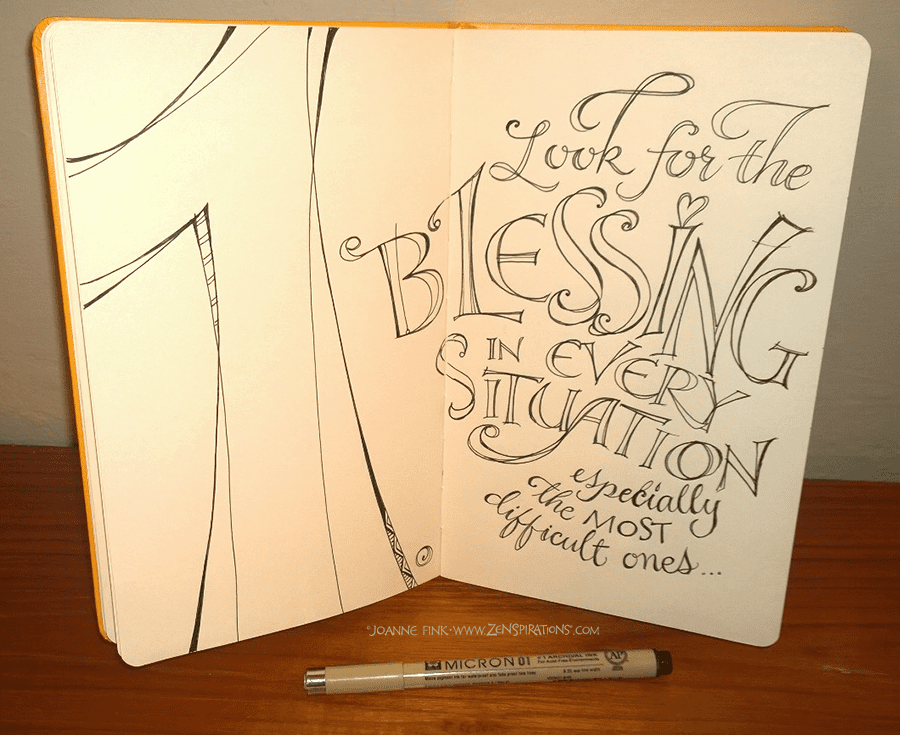 Look for the
BLESSING
IN EVERY
SITUATION
especially
the MOST
difficult ones...
"JOANNE FINK•WWW.ZENSPIRATIONS".COM
MICRON 01
AP